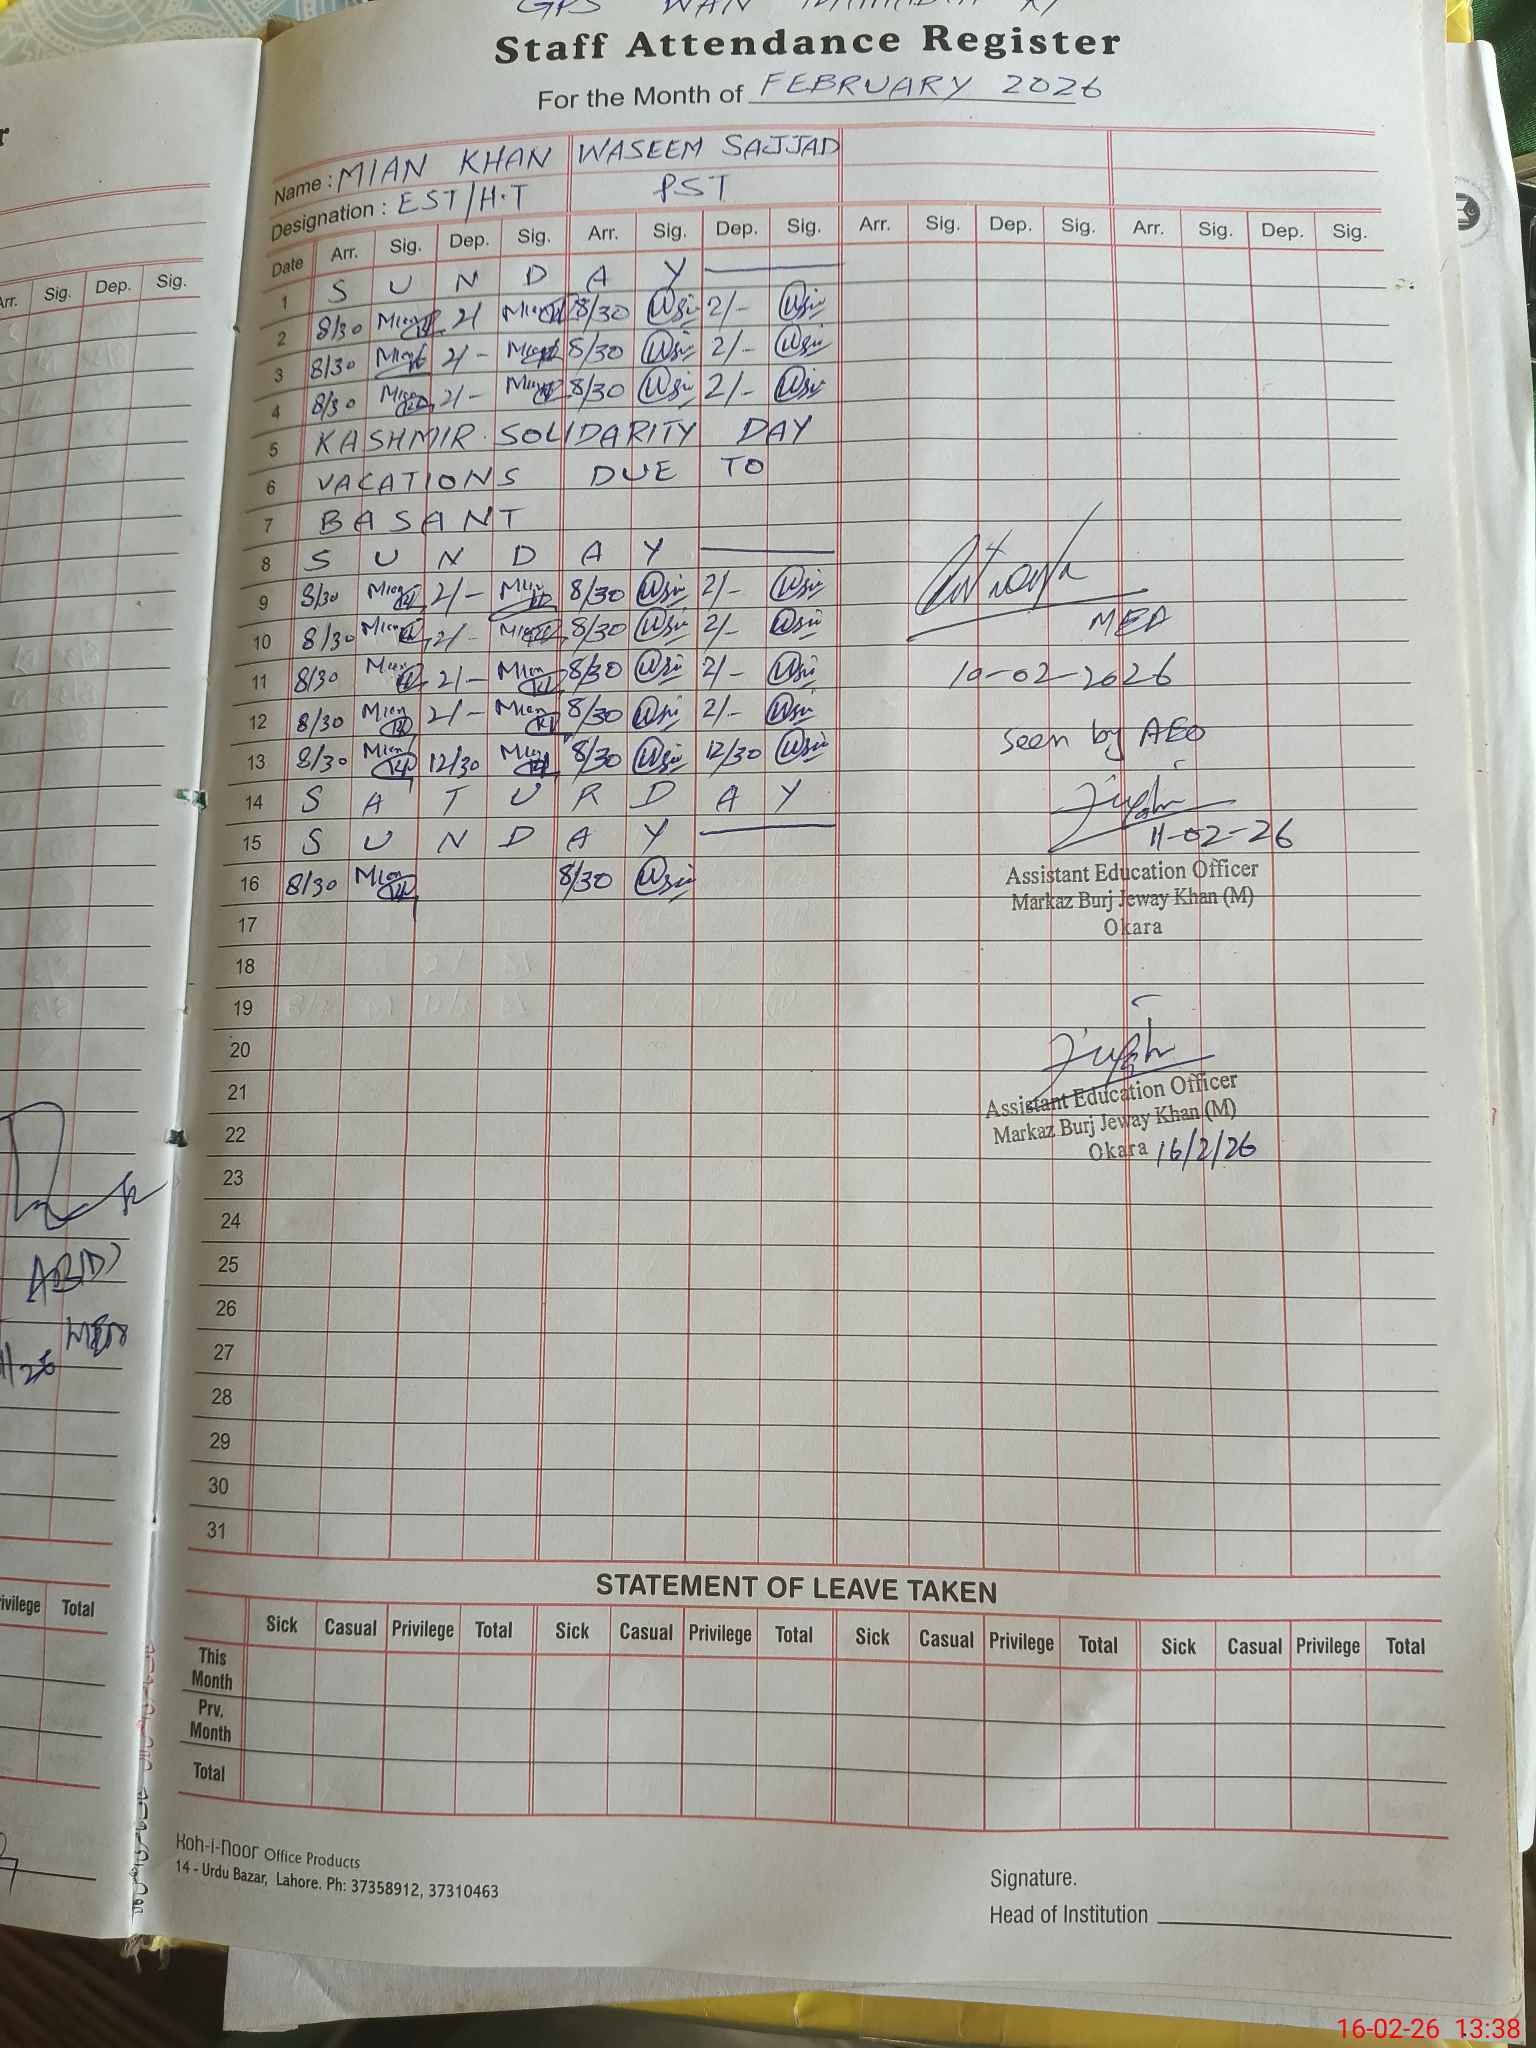 GPS WAN
Staff Attendance Register
For the Month of FEBRUARY 2026
Name: MIAN KHAN WASEEM SAJJAD
Designation: EST/H.T PST
Date Arr. Sig. Dep. Sig. Arr. Sig. Dep. Sig. Arr. Sig. Dep. Sig. Arr. Sig. Dep. Sig.
Arr. Sig. Dep. Sig.
1 S U N D A Y
2 8/30 Mian 2/ Mian 8/30 2/-
3 8/30 Mian 2/- Mian 8/30 2/-
4 8/30 Mian 2/- Mian 8/30 2/-
5 KASHMIR SOLIDARITY DAY
6 VACATIONS DUE TO
7 BASANT
8 S U N D A Y
9 8/30 Mian 2/- Mian 8/30 2/-
10 8/30 Mian 2/- Mian 8/30 2/-
MEA
11 8/30 Mian 2/- Mian 8/30 2/-
10-02-2026
12 8/30 Mian 2/- Mian 8/30 2/-
seen by AEO
13 8/30 Mian 12/30 Mian 8/30 12/30
14 S A T U R D A Y
15 S U N D A Y
11-02-26
16 8/30 Mian 8/30
Assistant Education Officer
Markaz Burj Jeway Khan (M)
Okara
17
18
19
20
21
Assistant Education Officer
Markaz Burj Jeway Khan (M)
Okara 16/2/26
22
23
24
25
26
27
28
29
30
31
ABID
STATEMENT OF LEAVE TAKEN
Sick Casual Privilege Total Sick Casual Privilege Total Sick Casual Privilege Total Sick Casual Privilege Total
Total
This
Month
Prv.
Month
Total
Koh-i-noor Office Products
14 - Urdu Bazar, Lahore. Ph: 37358912, 37310463
Signature.
Head of Institution
16-02-26 13:38